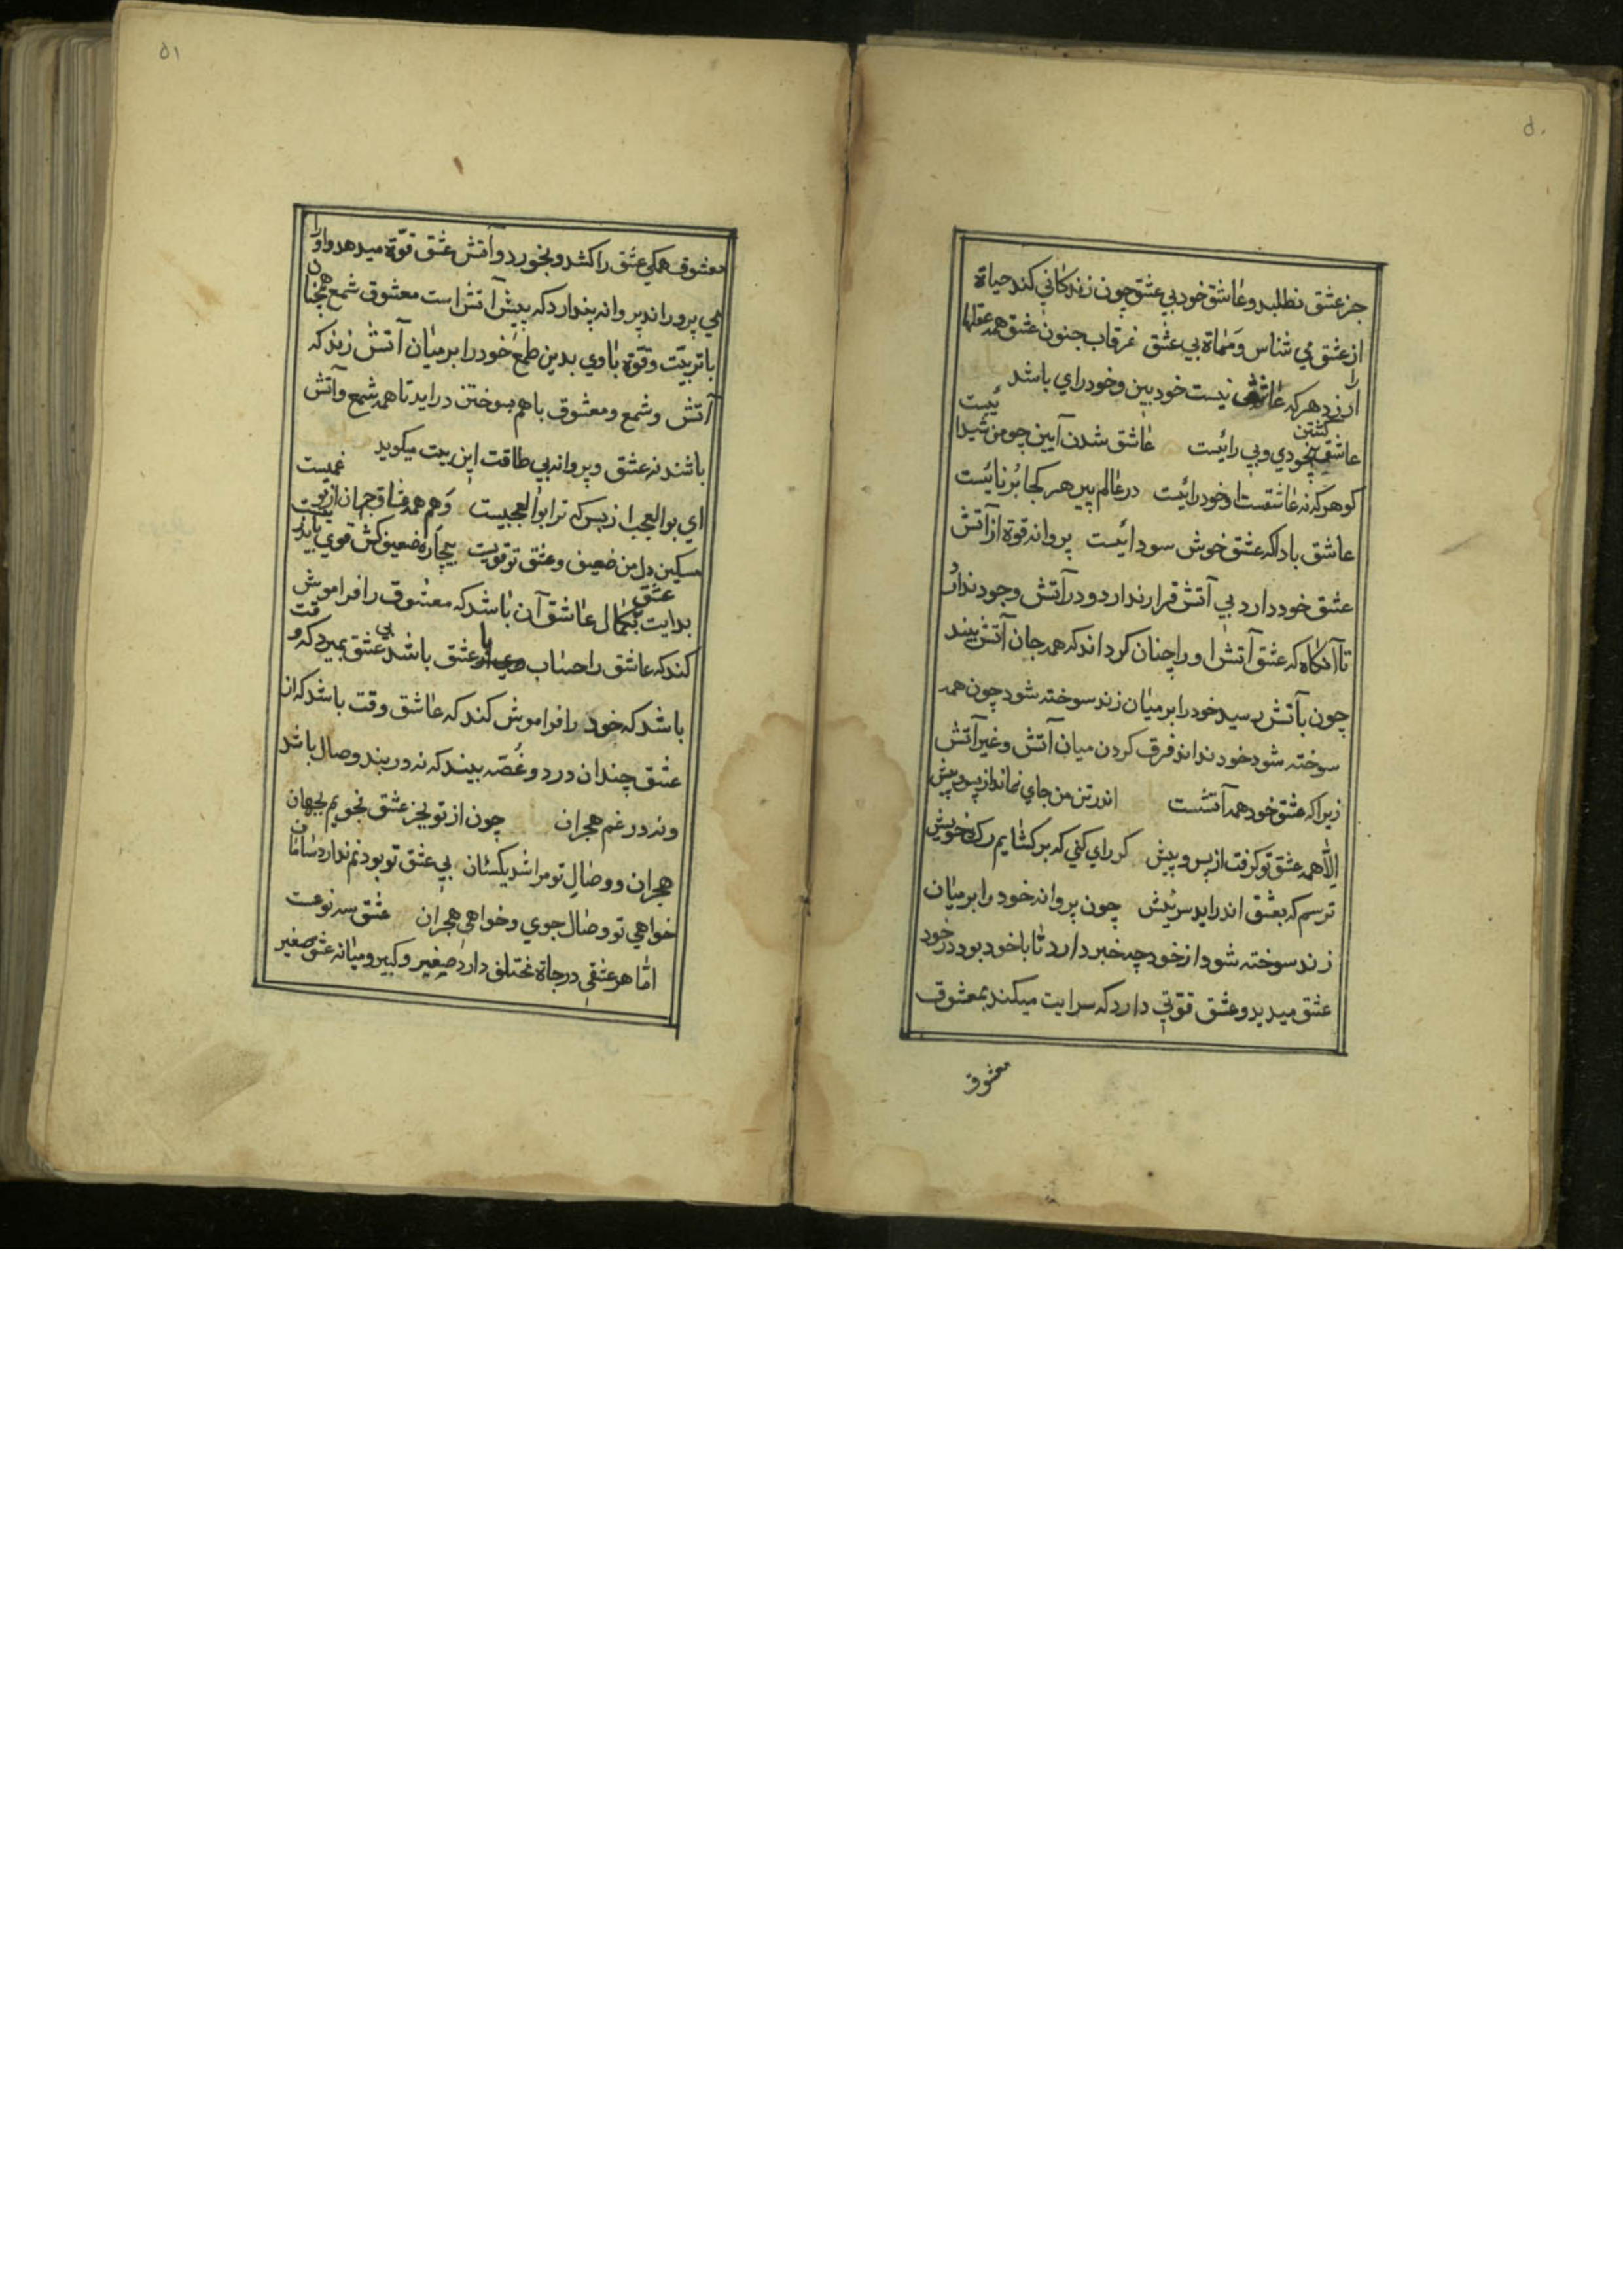 ۵۰
جز عشق نطلبد و عاشق خود بي عشق چون زندكاني كند حياة
از عشق مي شناس و مماة بي عشق غرقاب جنون عشق همه عقلها را
ارزد هر كه عاشق نيست خود بين و خود راي باشد
عاشق كشتن بيخودي و بي رائيست عاشق شدن آيين چو من شيدائيست
كو هر كه نه عاشقست او خود رائيست در عالم پير هر كجا برنائيست
عاشق بادا كه عشق خوش سودائيست پروانه قوة از آتش
عشق خود دارد بي آتش قرار ندارد و در آتش وجود ندارد
تا آنكاه كه عشق آتش او را چنان كرداند كه همه جان آتش بيند
چون بآتش رسيد خود را بر ميان زند سوخته شود چون همه
سوخته شود خود نداند فرق كردن ميان آتش و غير آتش
زيرا كه عشق خود همه آتشست اندر تن من جاي نماند از پس و پيش
الا همه عشق تو كرفت از پس و پيش كر راي كني كه بر كشايم رك خويش
ترسم كه بعشق اندر ايد سر نيش چون پروانه خود را بر ميان
زند سوخته شود از خود چه خبر دارد تا با خود بود در خود
عشق ميديد و عشق قوتي دارد كه سرايت ميكند بمعشوق
معشوق
۵۱
معشوق همكي عشق را كشد و بخورد و آتش عشق قوّة ميدهد و او را
مي پروراند پروانه پندارد كه پيش آتش است معشوق شمع همچنان
با تربيّت و قوّة با وي بدين طمع خود را بر ميان آتش زند كه
آتش و شمع و معشوق با هم بسوختن درايد تا همه شمع و آتش
باشند نه عشق و پروانه بي طاقت اين بيت ميكويد
اي بو العجب از بس كه ترا بو العجبيست وهم همه عشاق جهان از تو غميست
مسكين دل من ضعيف و عشق تو قويست بيچاره ضعيف كش قوي بايد زيست
بدايت عشق بكمال عاشق آن باشد كه معشوق را فراموش
كند كه عاشق را حساب با عشق باشد بي عشق بميرد كه وقت
باشد كه خود را فراموش كند كه عاشق وقت باشد كه از
عشق چندان درد و غصّه بيند كه نه در بند وصال باشد
و نه در غم هجران چون از تو بجز عشق نجويم بجهان
هجران و وصال تو مرا شد يكسان بي عشق تو بودنم ندارد سامان
خواهي تو وصال جوي و خواهي هجران عشق سه نوعست
امّا هر عشقي درجاة مختلف دارد صغير و كبير و ميانه عشق صغير